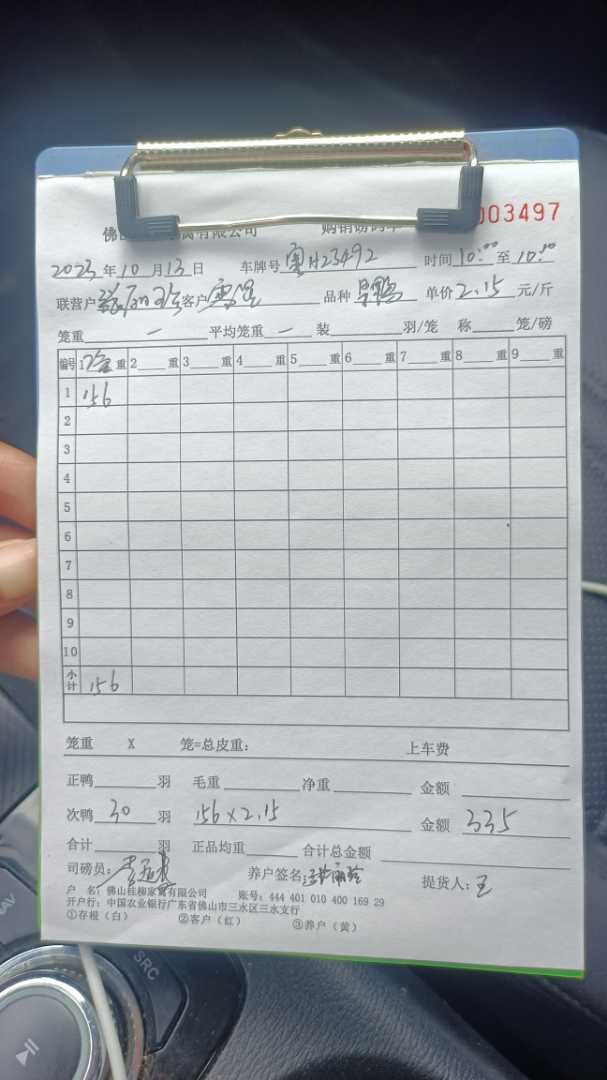 有限公司
003497
2023年10月13日 车牌号 粤H23492 时间10:00至10:10
联营户 客户 品种 单价2.15元/斤
笼重 一 平均笼重 一 装 羽/笼 称 笼/磅
编号 1 重 2 重 3 重 4 重 5 重 6 重 7 重 8 重 9 重
1 156
2
3
4
5
6
7
8
9
10
小计 156
笼重 X 笼=总皮重: 上车费
正鸭 羽 毛重 净重 金额
次鸭 30 羽 156×2.15 金额 335
合计 羽 正品均重 合计总金额
司磅员: 养户签名: 提货人:王
户 名: 佛山桂柳家禽有限公司 账号: 444 401 010 400 169 29
开户行: 中国农业银行广东省佛山市三水区三水支行
①存根(白) ②客户(红) ③养户(黄)
SRC